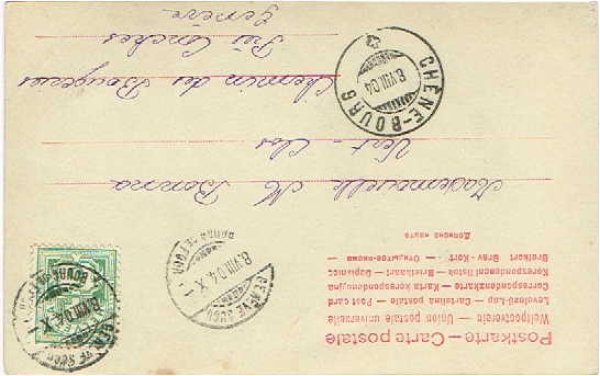 Postkarte — Carte postale
Weltpostverein — Union postale universelle
Levelező-Lap — Cartolina postale — Post card
Correspondenzkarte — Karta korespondencyjna
Korespondenční lístek — Briefkaart —
Brefkort — Brev-Kort — Открытое письмо —
Mademoiselle M Bonna
Vert-Clos
Chemin des Bougeries
Près Conches
Genève
CHÊNE-BOURG
8.VIII.04
GENÈVE SUCC
8.VIII.04.X
BOURG-DE-FOUR
GENÈVE SUCC
8.VIII.04.X